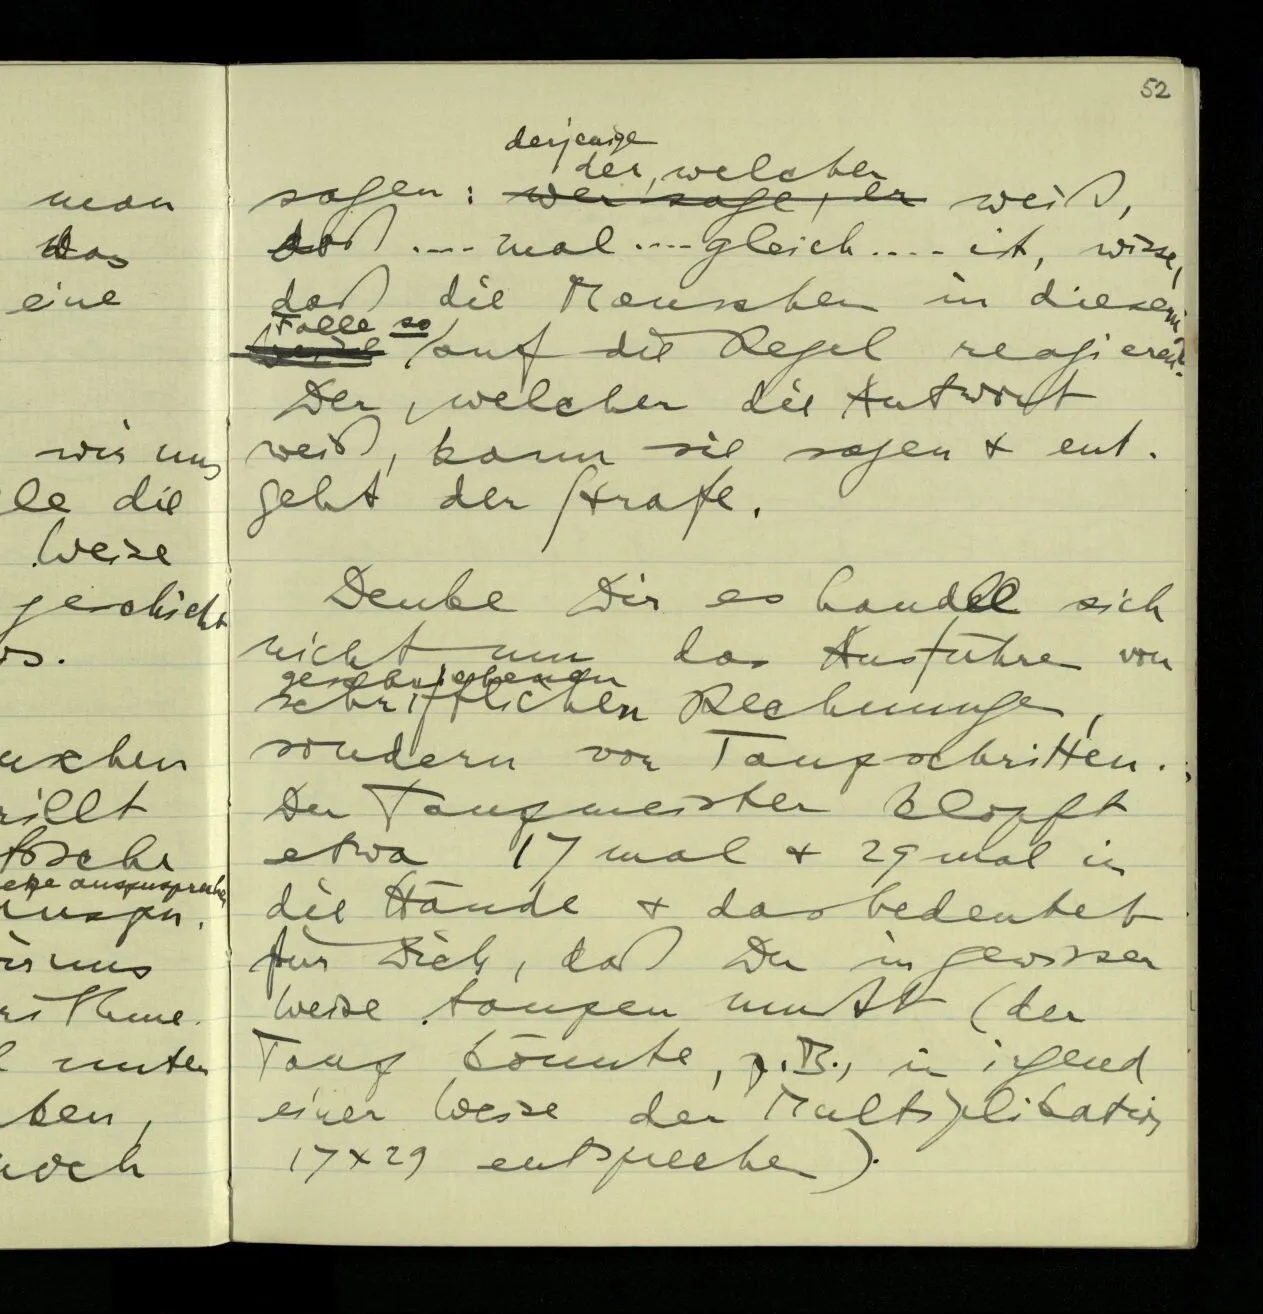 52
man
das
eine
wir uns
le die
Weise
geschieht
os.
schen
rillt
tische
auszusprechen
rs uns
unten
ben,
noch
derjenige
der, welcher
sagen: wer sage, er weiß,
daß .... mal .... gleich .... ist, wisse,
daß die Menschen in diesem
Falle so
auf die Regel reagieren.
Der, welcher die Antwort
weiß, kann sie sagen & ent-
geht der Strafe.
Denke Dir es handelt sich
nicht um das Ausführen von
geschriebenen
schriftlichen Rechnungen,
sondern von Tanzschritten.
Der Tanzmeister klopft
etwa 17 mal & 29 mal in
die Hände & das bedeutet
für Dich, daß Du in gewisser
Weise tanzen mußt (der
Tanz könnte, z.B., in irgend
einer Weise der Multiplikation
17×29 entsprechen).